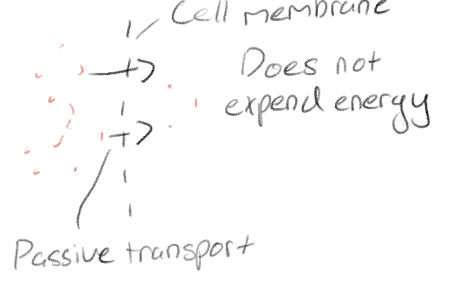 Cell membrane
Does not
expend energy
Passive transport